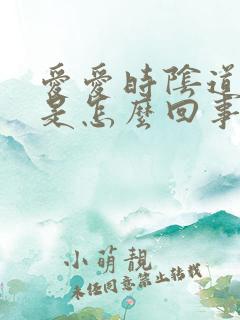 愛愛時陰道
是怎麼回事
小萌靚
未經同意禁止轉載